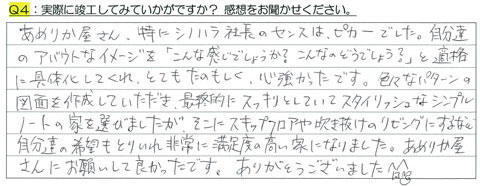 Q4：実際に竣工してみていかがですか？ 感想をお聞かせください。
あめりか屋さん、特にシノハラ社長のセンスは、ピカ一でした。自分達
のアバウトなイメージを「こんな感じでしょうか？こんなのどうでしょう？」と適格
に具体化してくれ、とてもたのもしく、心強かったです。色々なパターンの
図面を作成していただき、最終的にスッキリとしていてスタイリッシュなシンプル
ノートの家を選びましたが そこにスキップフロアや吹き抜けのリビングにするなど
自分達の希望もとりいれ非常に満足度の高い家になりました。あめりか屋
さんにお願いして良かったです。ありがとうございました